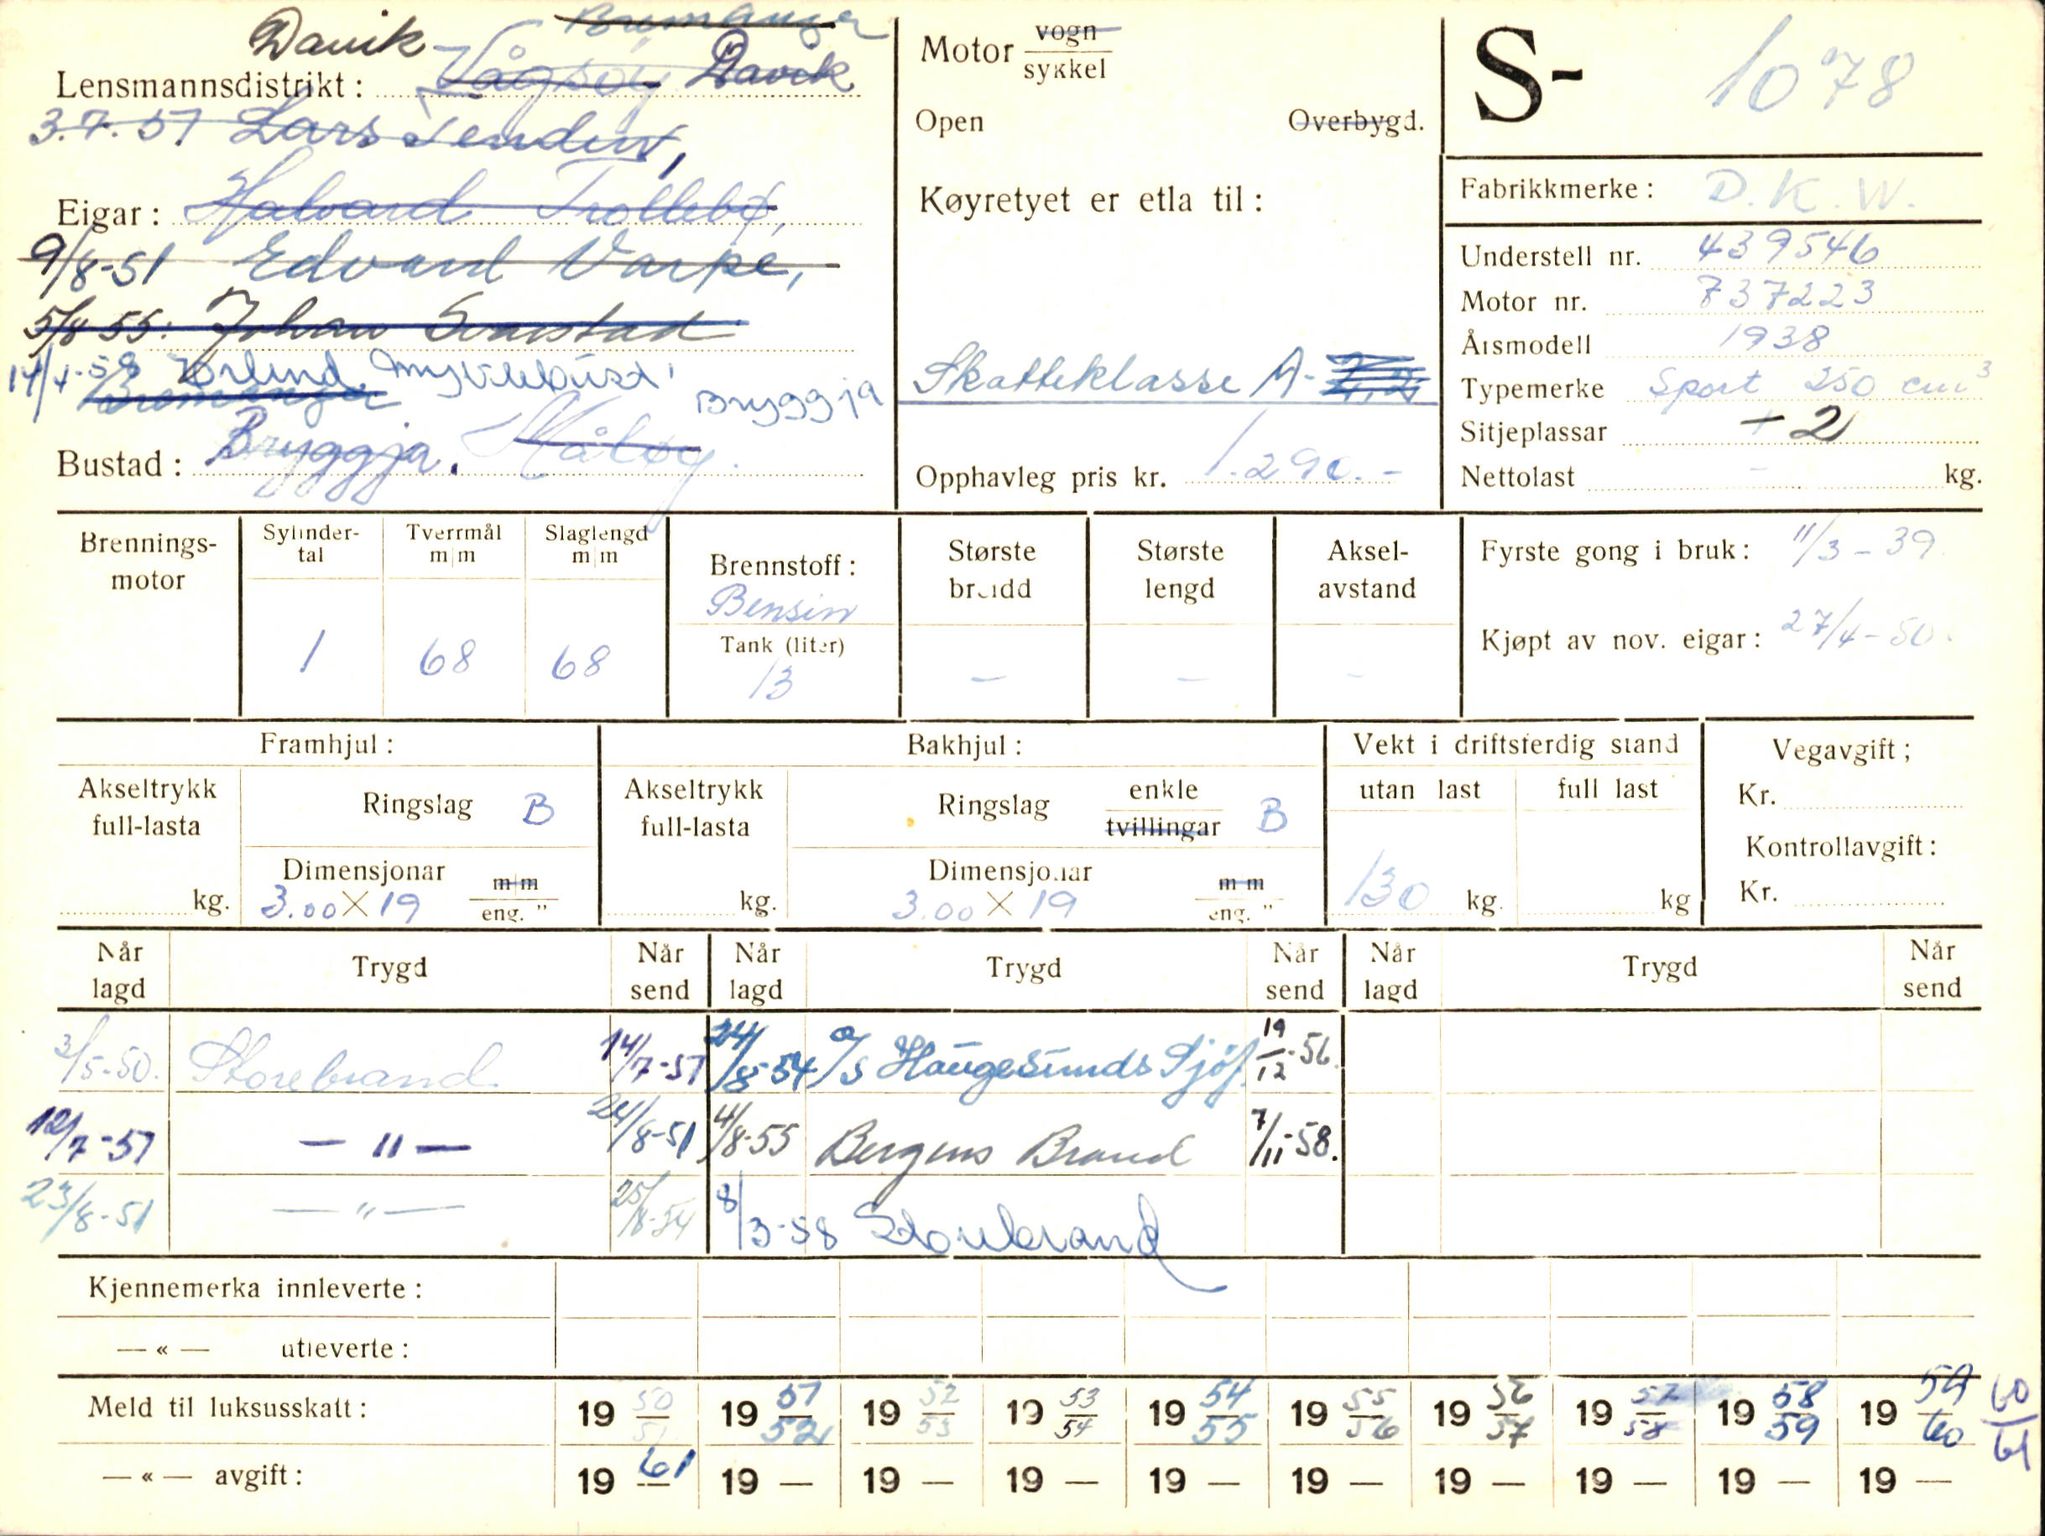 Davik Bremanger
Lensmannsdistrikt: Vågsøy Davik
3.7.51 Lars
Eigar: Halvard Trollebø,
9/8-51 Edvard Varpe,
5/8 55: Johan
14/4-58 Erlend Myklebust,
Bremanger Bryggja
Bustad: Bryggja. Måløy.
Motor vogn
sykkel
Open Overbygd.
Køyretyet er etla til:
Skatteklasse A-
Opphavleg pris kr. 1.290.-
S- 1078
Fabrikkmerke: D.K.W.
Understell nr. 439546
Motor nr. 737223
Årsmodell 1938
Typemerke Sport 250 cm³
Sitjeplassar 2
Nettolast - kg.
Brennings-
motor
Sylinder-
tal
1
Tverrmål
m|m
68
Slaglengd
m|m
68
Brennstoff:
Bensin
Tank (liter)
13
Største
breidd
-
Største
lengd
-
Aksel-
avstand
-
Fyrste gong i bruk: 11/3-39.
Kjøpt av nov. eigar: 27/4-50.
Framhjul:
Akseltrykk
full-lasta
kg.
Ringslag B
Dimensjonar m|m
3.00 X 19 eng. "
Bakhjul:
Akseltrykk
full-lasta
kg.
Ringslag enkle
tvillingar B
Dimensjonar m m
3.00 X 19 eng. "
Vekt i driftsferdig stand
utan last full last
130 kg. kg
Vegavgift;
Kr.
Kontrollavgift:
Kr.
Når lagd Trygd Når send Når lagd Trygd Når send Når lagd Trygd Når send
3/5-50. Storebrand 14/7-51 24/8-54 a/s Haugesunds Sjøf. 19/12-56.
12/7-51 — " — 24/8-51 4/8-55 Bergens Brand 7/11-58.
23/8-51 — " — 25/8-54 8/3-58 Storebrand
Kjennemerka innleverte:
— « — utleverte:
Meld til luksusskatt: 19 50/51 19 51/52 19 52/53 19 53/54 19 54/55 19 55/56 19 56/57 19 57/58 19 58/59 19 59/60 60/61
— « — avgift: 19 61 19 — 19 — 19 — 19 — 19 — 19 — 19 — 19 — 19 —